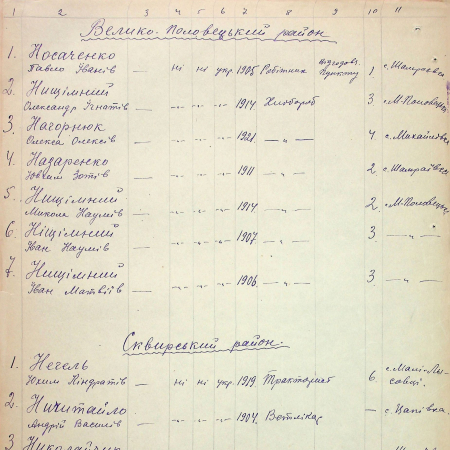 1 2 3 4 5 6 7 8 9 10 11
Велико-Половецький район
1. Носаченко
Павло Іванів — ні ні укр. 1905 Робітник пункту 1 с. Шамраївка
2. Нищімний
Олександр Гнатів — -„- -„- -„- 1914 Хлібороб 3 М-Половецьк
3. Нагорнюк
Олекса Олексів — -„- -„- -„- 1921 — „ — 4 с. Михайлівка
4. Надаренко
Юхим Зотів — -„- -„- -„- 1911 — „ — 2 с. Шамраївка
5. Нищімний
Микола Наумів — -„- -„- -„- 1914 — „ — 2 М-Половецьк
6. Ніщімний
Іван Наумів — -„- -„- -„- 1907 — „ — 3 — „ —
7. Нищімний
Іван Матвіїв — -„- -„- -„- 1906 — „ — 3 — „ —
Сквирський район.
1. Нечель
Юхим Кіндратів — ні ні укр. 1919 Тракторист 6 с. Малі-Ли-
совці.
2. Ничитайло
Андрій Василів — -„- -„- -„- 1904 Ветлікар — с. Цапівка.
3 Николайчук